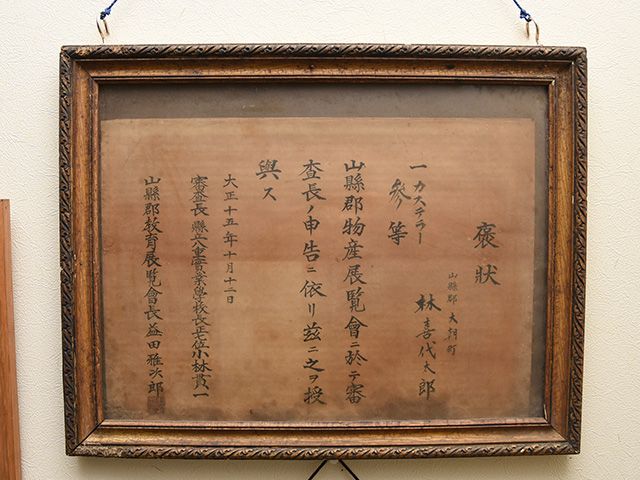 褒狀
山縣郡大朝町
林喜代太郎
一カステラー
參等
山縣郡物産展覽會ニ於テ審
査長ノ申告ニ依リ茲ニ之ヲ授
與ス
大正十五年十月十二日
審査長縣立八重實業學校長正七位小林貫一
山縣郡敎育展覽會長益田雅次郎